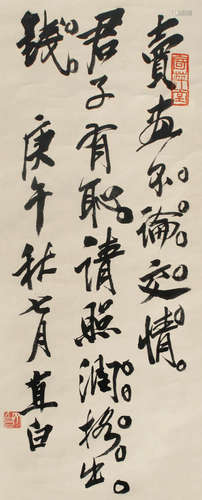 賣畫不論交情。
君子有耻。請照潤格出
錢。庚午秋七月直白